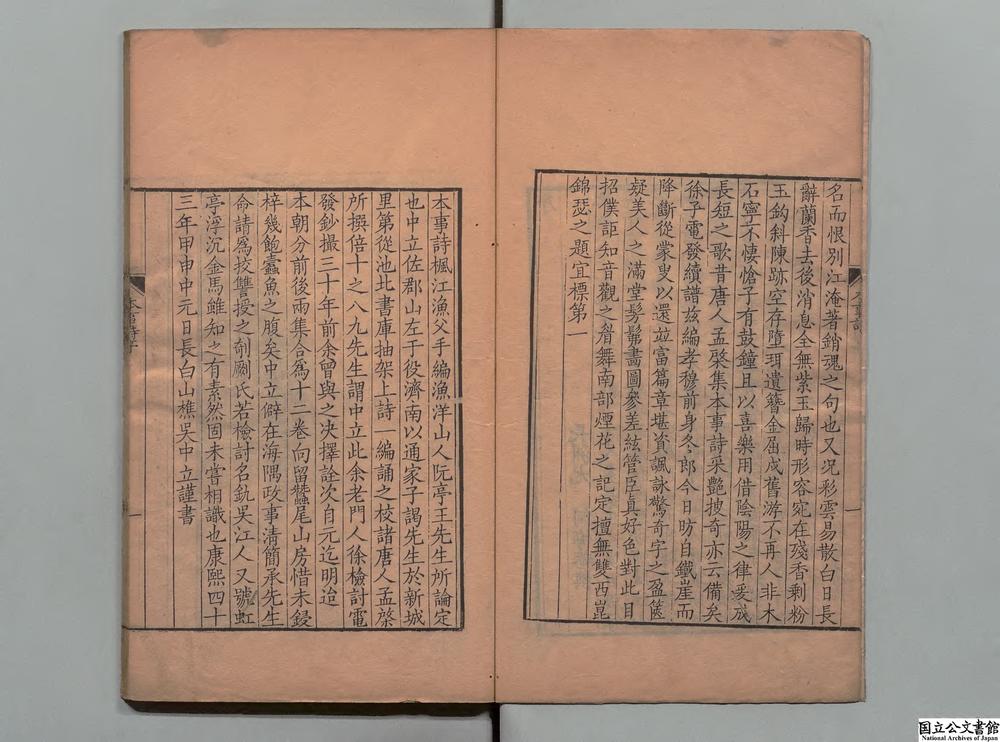 名而恨別江淹著銷魂之句也又况彩雲易散白日長
辭蘭香去後消息全無紫玉歸時形容宛在殘香剩粉
玉鈎斜陳跡空存墮珥遺簪金屈戍舊游不再人非木
石寧不悽愴子有鼓鐘且以喜樂用借陰陽之律爰成
長短之歌昔唐人孟棨集本事詩采艷披奇亦云備矣
徐子電發續譜兹編孝穆前身冬郎今日昉自鐵崖而
降斷從蒙叟以還並富篇章堪資諷詠驚奇字之盈篋
疑美人之滿堂髣髴畫圖參差絃管臣真好色對此目
招僕詎知音觀之眉舞南部煙花之記定擅無雙西崑
錦瑟之題宜標第一
本事詩楓江漁父手編漁洋山人阮亭王先生所論定
也中立佐郡山左于役濟南以通家子謁先生於新城
里第從池北書庫抽架上詩一編誦之校諸唐人孟棨
所撰倍十之八九先生謂中立此余老門人徐檢討電
發鈔撮三十年前余曾與之决擇詮次自元迄明迨
本朝分前後兩集合爲十二卷向留蠶尾山房惜未鋟
梓幾飽蠹魚之腹矣中立僻在海隅政事清簡承先生
命請爲挍讐授之剞劂氏若檢討名釚吳江人又號虹
亭浮沉金馬雖知之有素然固未嘗相識也康熙四十
三年甲申中元日長白山樵吳中立謹書
国立公文書館
National Archives of Japan